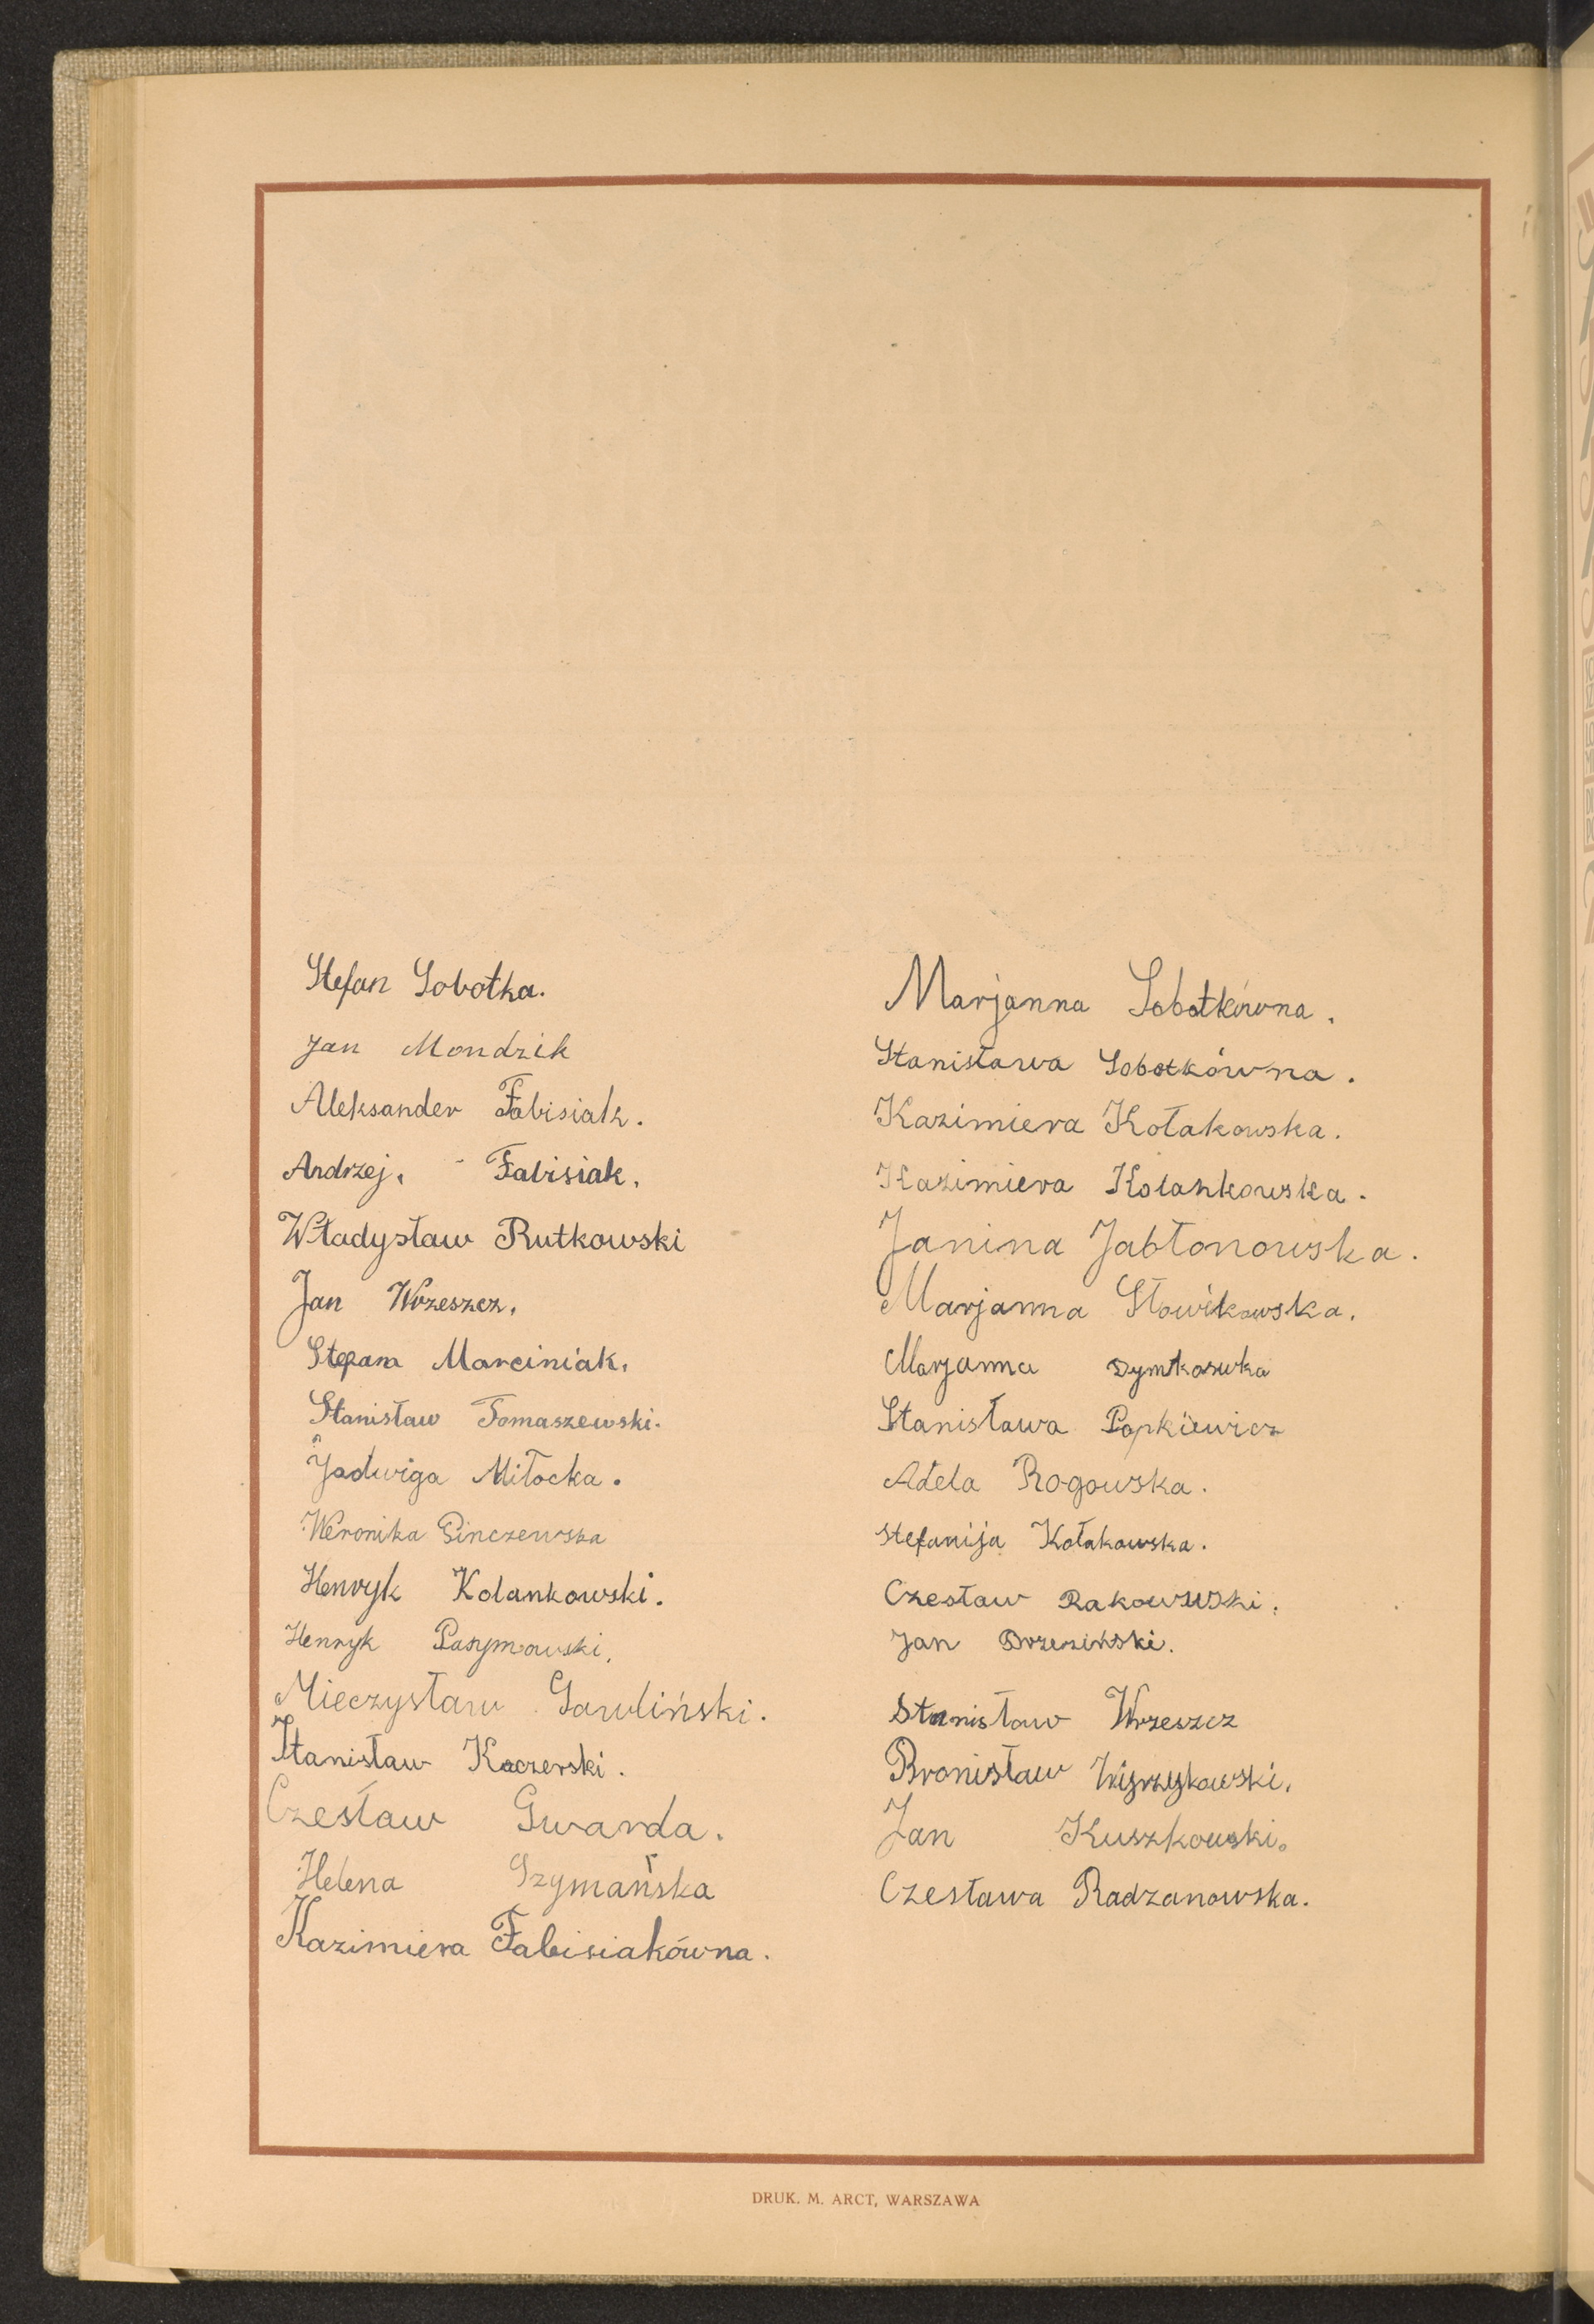 Stefan Sobotka.
Jan Mondzik
Aleksander Fabisiak.
Andrzej. Fabisiak.
Władysław Rutkowski
Jan Wrzeszcz.
Stefan Marciniak.
Stanisław Tomaszewski.
Jadwiga Miłocka.
Weronika Ginczewska
Henryk Kolankowski.
Henryk Pasymowski.
Mieczysław Gawliński.
Stanisław Kaczerski.
Czesław Gwarda.
Helena Szymańska
Kazimiera Fabisiakówna.
Marjanna Sobotkówna.
Stanisława Sobotkówna.
Kazimiera Kołakowska.
Kazimiera Kolankowska.
Janina Jabłonowska.
Marjanna Słowikowska.
Marjanna
Stanisława Popkiewicz
Adela Rogowska.
Stefanija Kołakowska.
Czesław Rakowski.
Jan Brzeziński.
Stanisław Wrzeszcz
Bronisław Wyrzykowski.
Jan Kuszkowski.
Czesława Radzanowska.
DRUK. M. ARCT, WARSZAWA